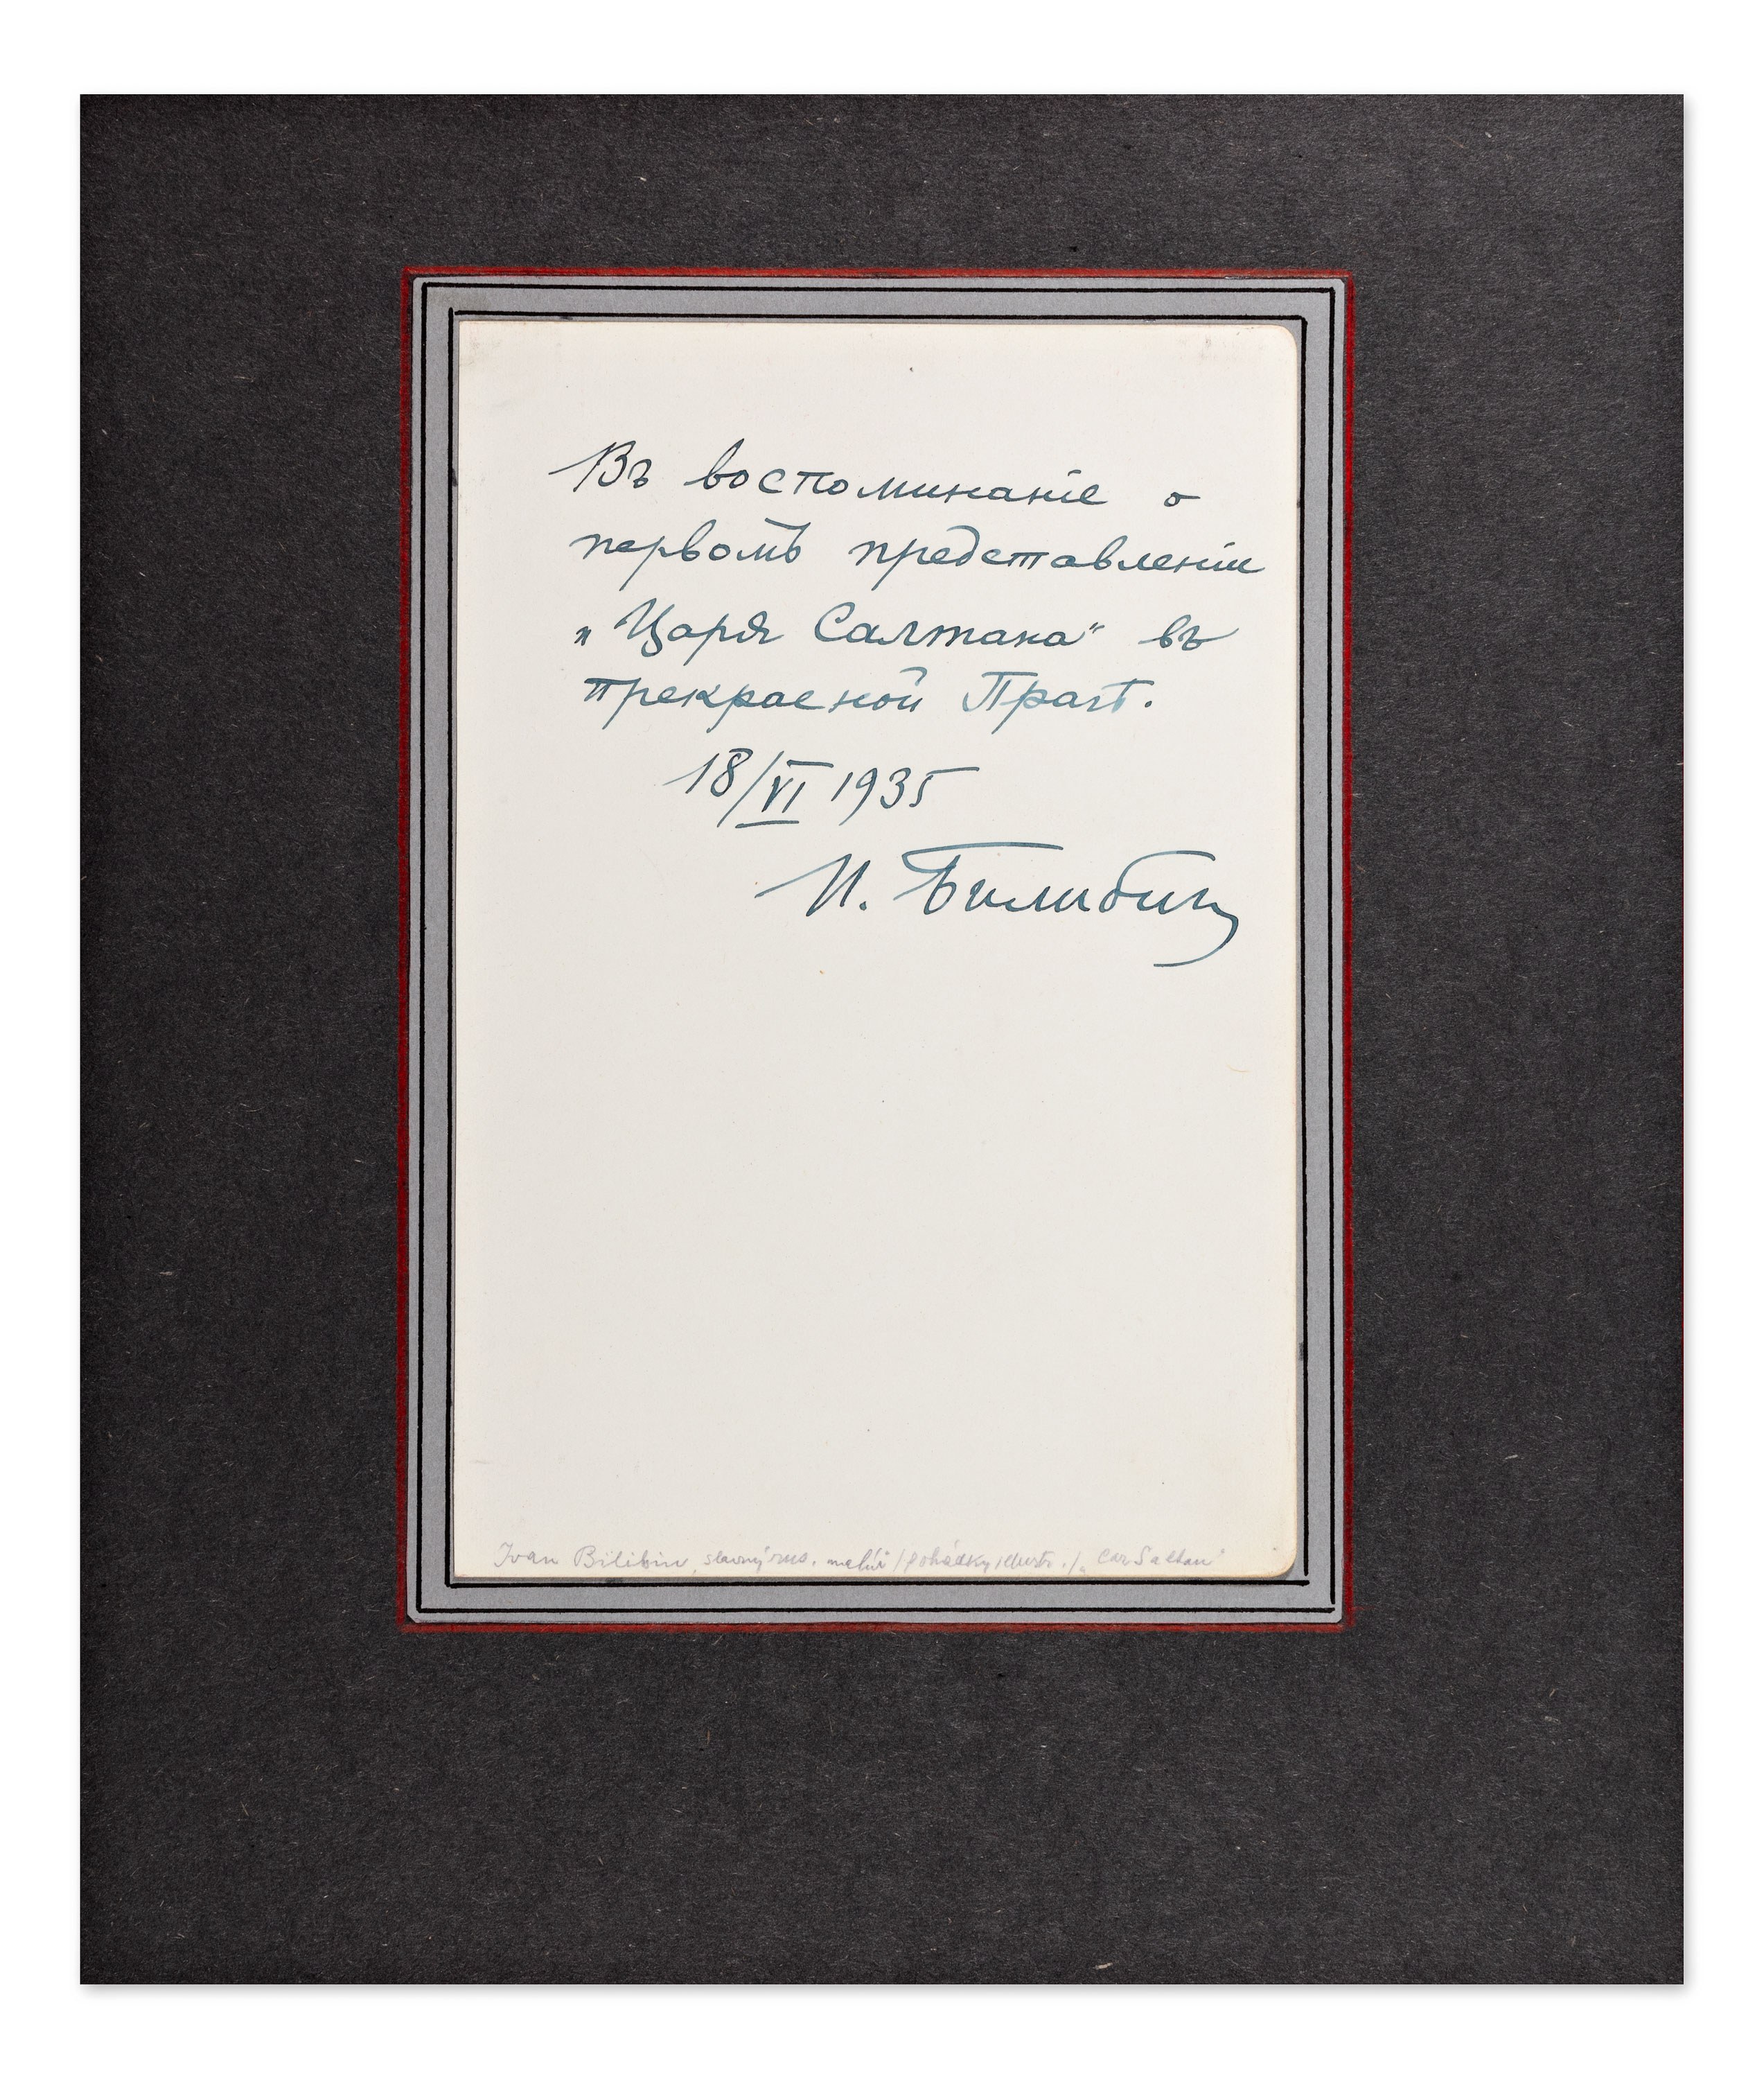 Въ воспоминаніе о
первомъ представленіи
„Царя Салтана" въ
прекрасной Прагѣ.
18/VI 1935
И. Билибин
Ivan Bilibin, slavný rus. malíř / pohádky illustr. / „Car Saltan"